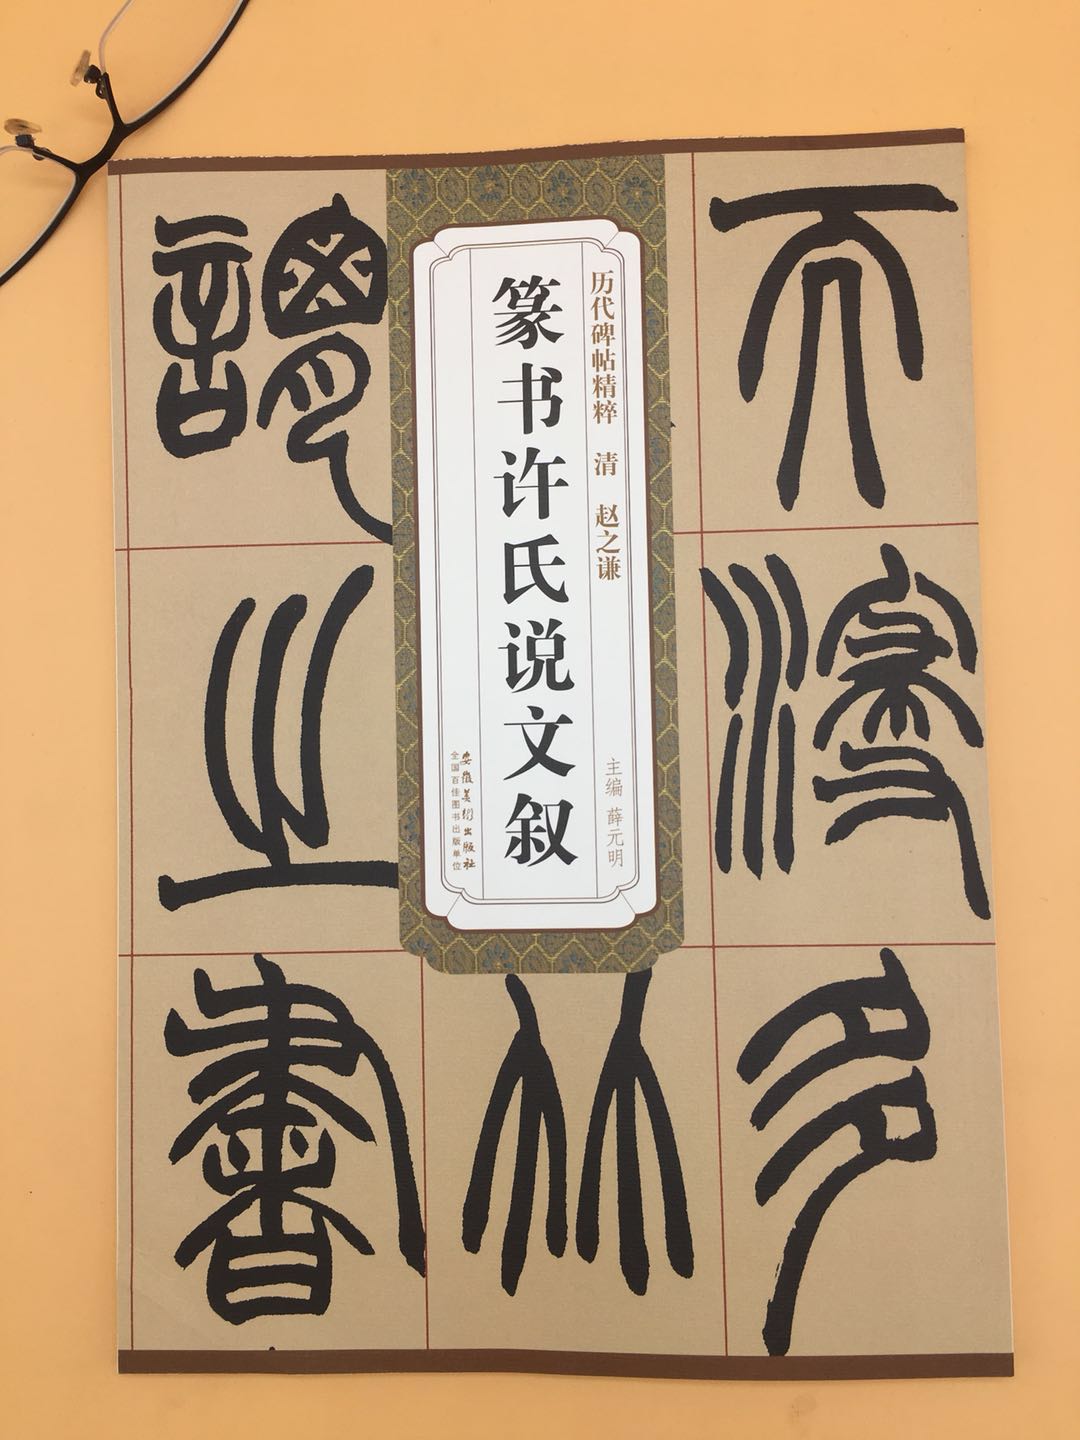 历代碑帖精粹 清 赵之谦
篆书许氏说文叙
主编 薛元明
安徽美术出版社
全国百佳图书出版单位
谓
之
书
林
多